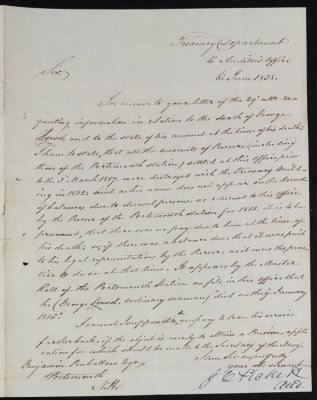 Treasury Department
4 Auditor's Office
6 June 1838.
Sir,
In answer to your letter of the 29' ulto. re-
questing information in relation to the death of George
Lovch and to the state of his account at the time of his death;
I have to state, that all the accounts of Pursers, (including
those of the Portsmouth station) settled at this office, prior
to the 3d March 1817, were destroyed with the Treasury Build-
ing in 1833: and as his name does not appear on the
of balances due to deceased persons, as returned to this office
by the Purser of the Portsmouth station for 1818, it is to be
presumed, that there was no pay due to him at the time of
his death; or if there was a balance due that it was paid
to his legal representatives by the Purser, as it was the prac-
tice to do so at that time. It appears by the Muster
Roll of the Portsmouth Station on file in this office that
he (George ordinary seaman) died on the January
1818.
I cannot suppose the to trace his service
further back. if the object is merely to obtain a Pension, appli-
cation for which should be made to the Secretary of the Navy.
I am Sir respectfully
your obt. servant
Benjamin Penhallow Esqr.
Portsmouth
N. H.
J C Pickett
Aud.